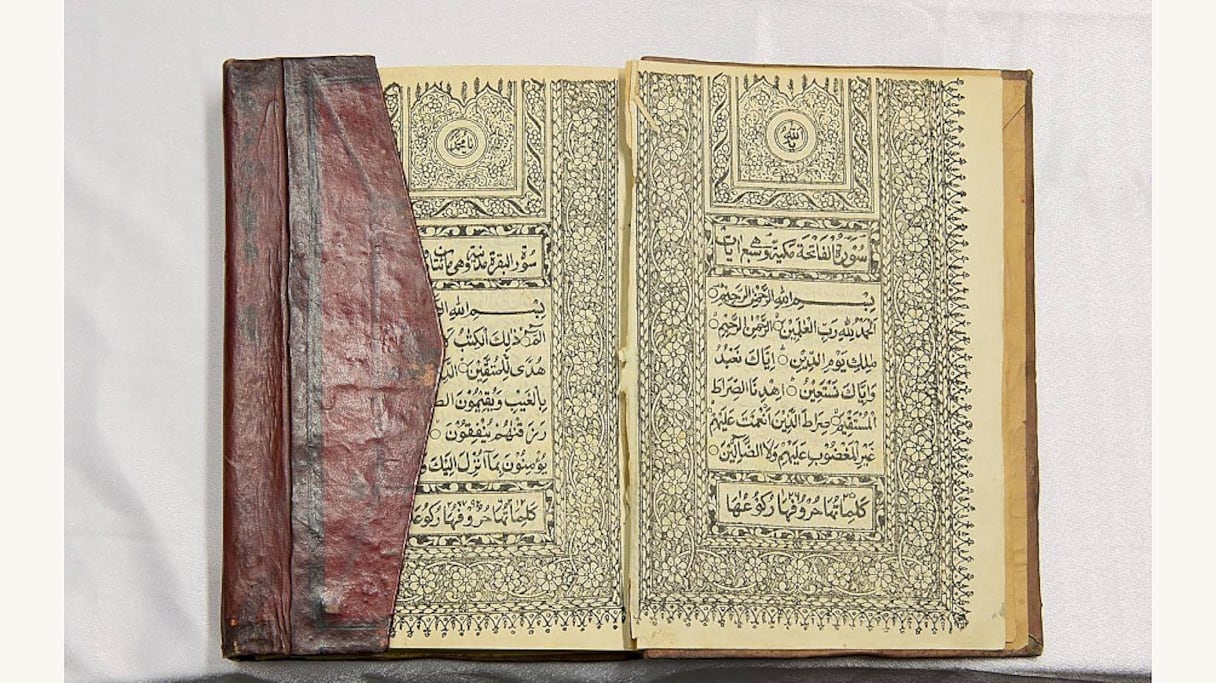 يا الله
سُوْرَةُ الْفَاتِحَةِ مَكِّيَّة وَهِيَ سَبْعُ اٰيَات
بِسْمِ اللّٰهِ الرَّحْمٰنِ الرَّحِيْمِ
اَلْحَمْدُ لِلّٰهِ رَبِّ الْعٰلَمِيْنَ ۝ الرَّحْمٰنِ الرَّحِيْمِ ۝
مٰلِكِ يَوْمِ الدِّيْنِ ۝ اِيَّاكَ نَعْبُدُ
وَاِيَّاكَ نَسْتَعِيْنُ ۝ اِهْدِنَا الصِّرَاطَ
الْمُسْتَقِيْمَ ۝ صِرَاطَ الَّذِيْنَ اَنْعَمْتَ عَلَيْهِمْ
غَيْرِ الْمَغْضُوْبِ عَلَيْهِمْ وَلَا الضَّآلِّيْنَ ۝
كَلِمَاتُهَا حُرُوْفُهَا رُكُوْعُهَا
يا محمد
سُوْرَةُ الْبَقَرَةِ مَدَنِيَّة وَهِيَ مِائَتَانِ
بِسْمِ اللّٰهِ
الٓمّٓ ۝ ذٰلِكَ الْكِتٰبُ
هُدًى لِّلْمُتَّقِيْنَ ۝
بِالْغَيْبِ وَيُقِيْمُوْنَ
رَزَقْنٰهُمْ يُنْفِقُوْنَ ۝
يُؤْمِنُوْنَ بِمَآ اُنْزِلَ اِلَيْكَ
كَلِمَاتُهَا حُرُوْفُهَا